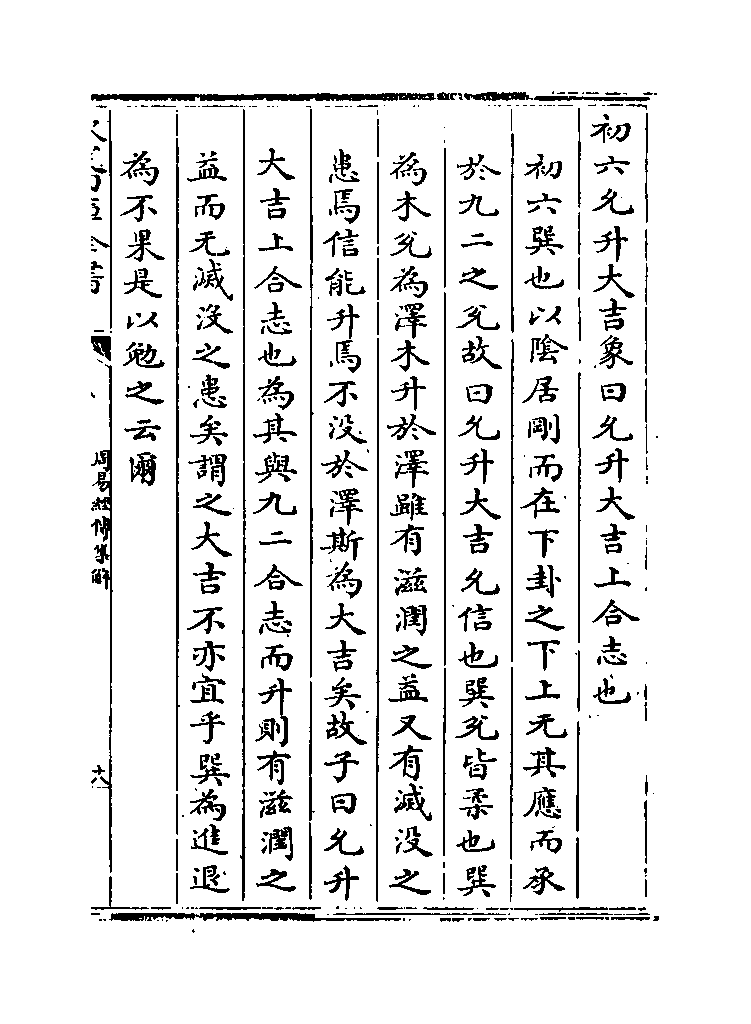 初六允升大吉象曰允升大吉上合志也
初六巽也以陰居剛而在下卦之下上无其應而承
於九二之兊故曰允升大吉允信也巽兊皆柔也巽
為木兊為澤木升於澤雖有滋潤之益又有滅没之
患焉信能升焉不没於澤斯為大吉矣故子曰允升
大吉上合志也為其與九二合志而升則有滋潤之
益而无滅没之患矣謂之大吉不亦宜乎巽為進退
為不果是以勉之云爾
周易經傳集解
十八